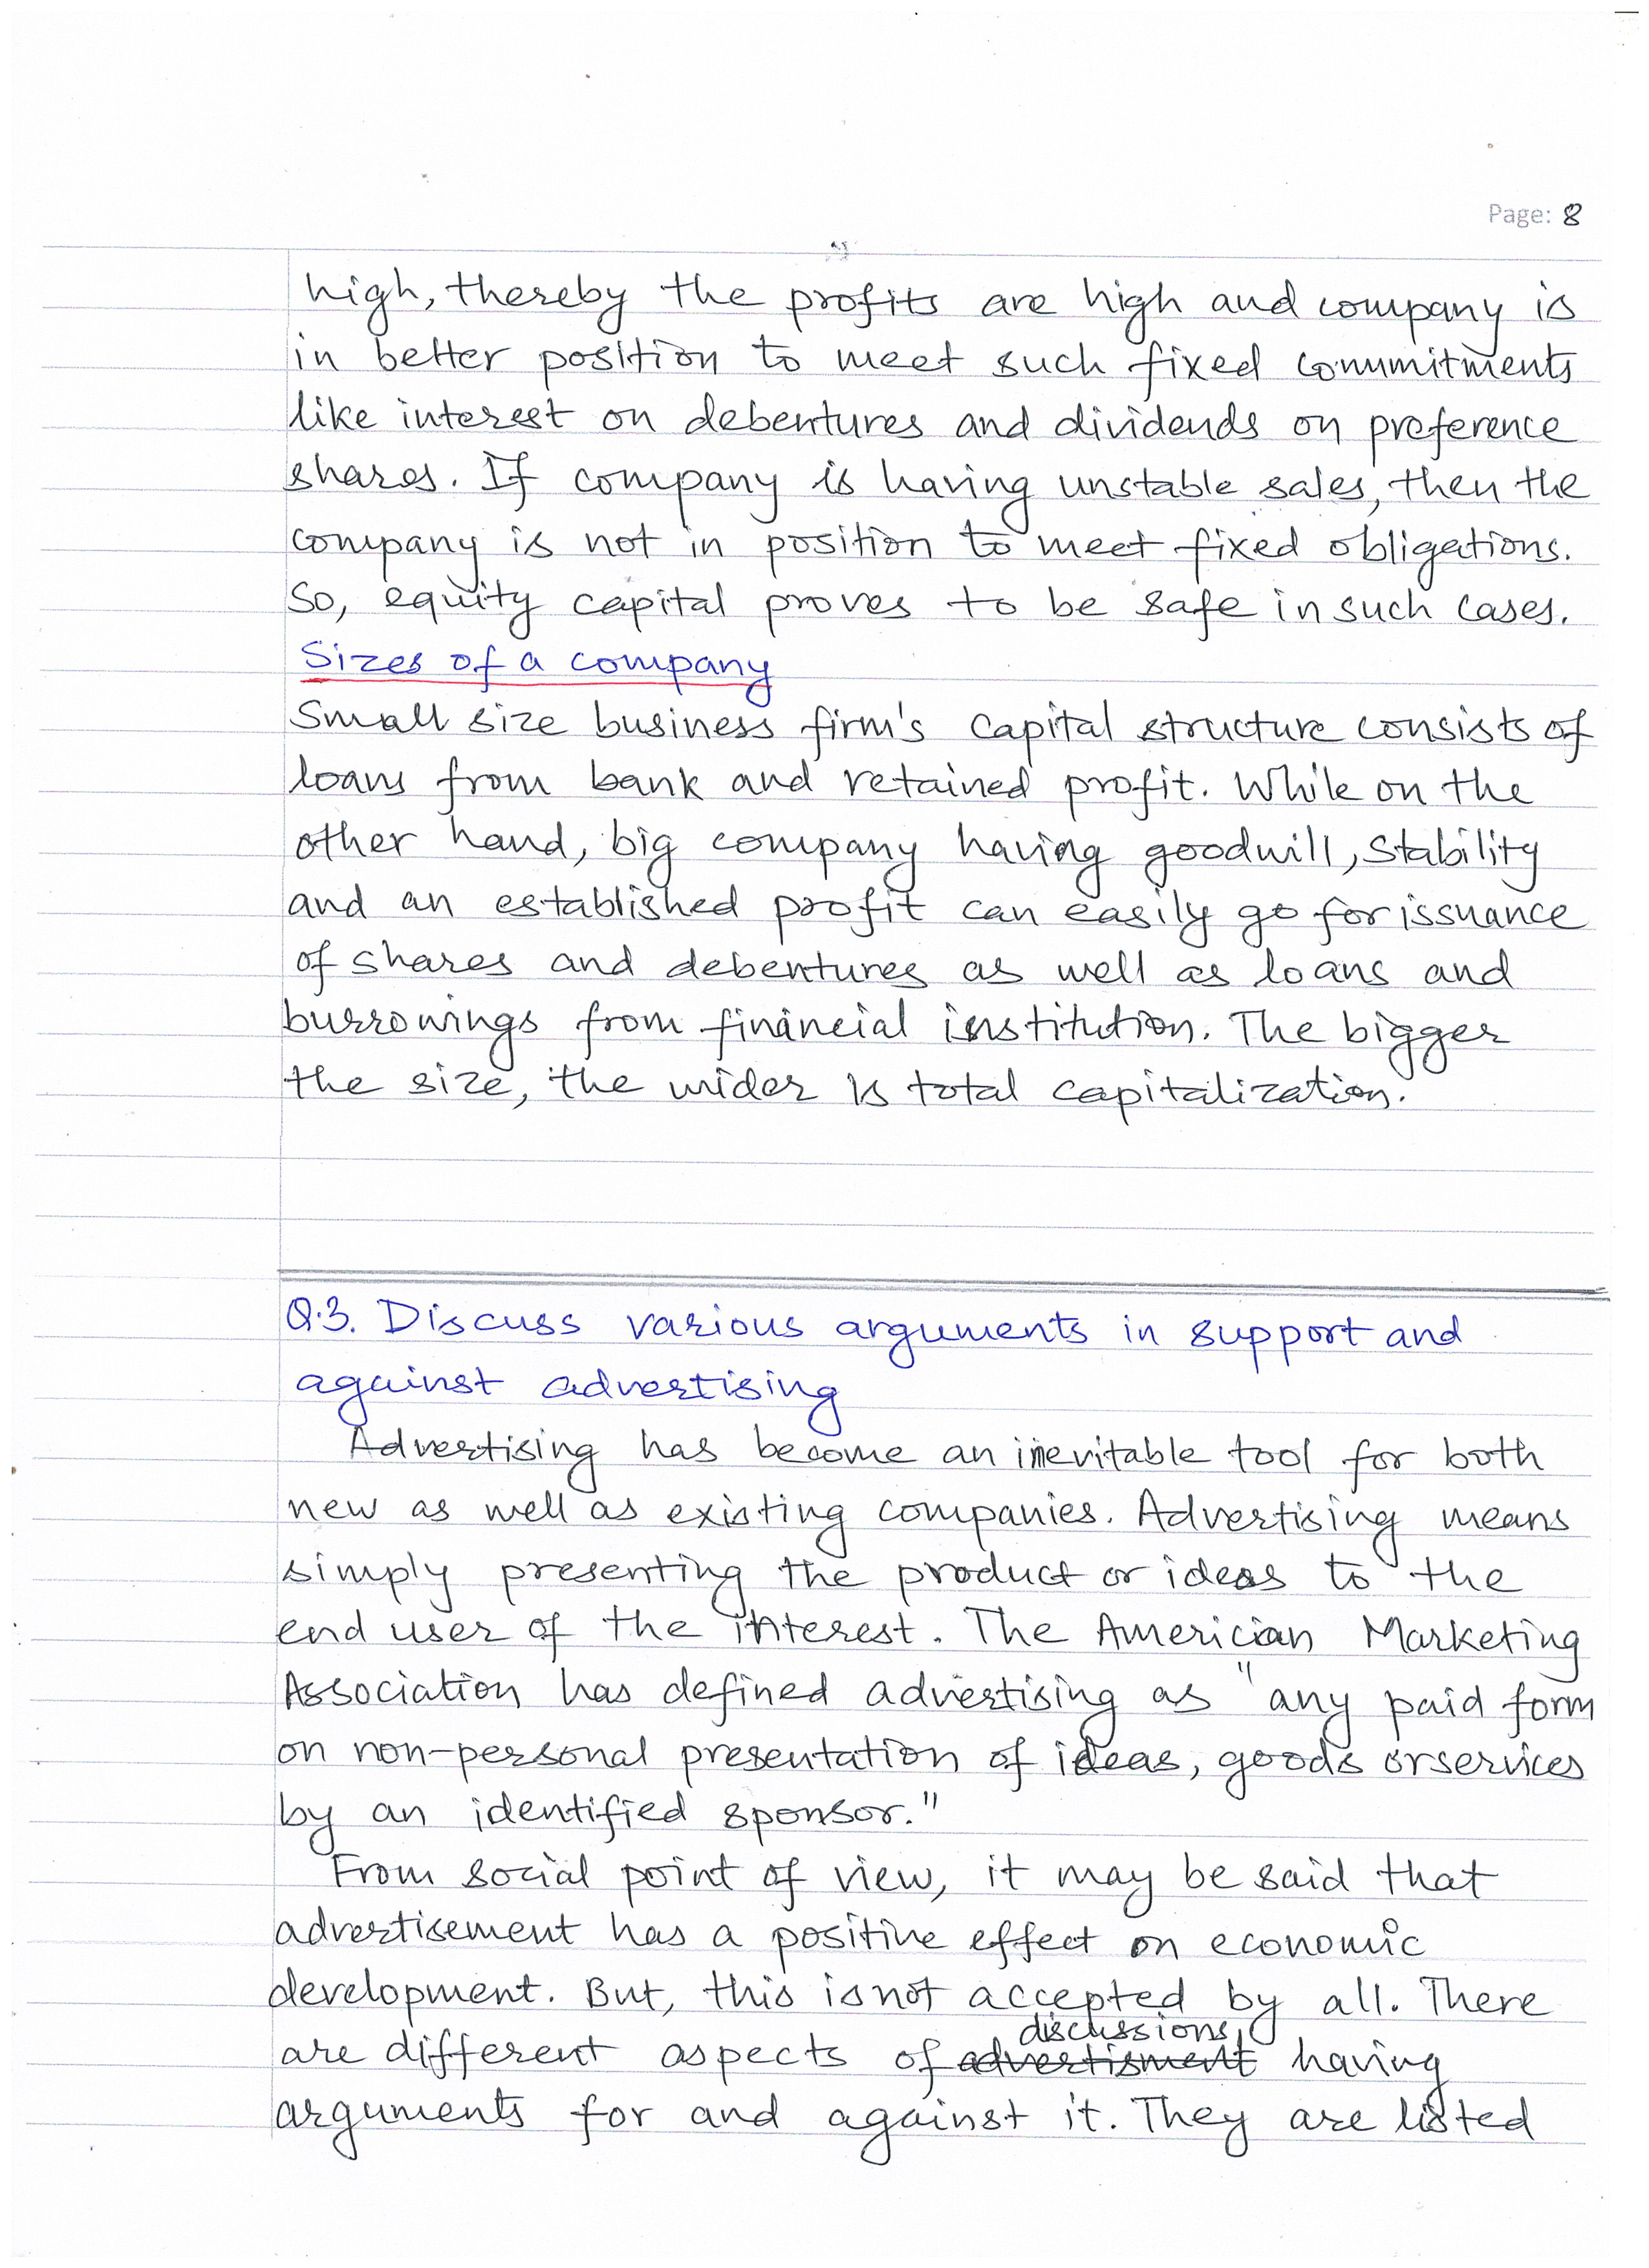 Page: 8
high, thereby the profits are high and company is
in better position to meet such fixed commitments
like interest on debentures and dividends on preference
shares. If company is having unstable sales, then the
company is not in position to meet fixed obligations.
So, equity capital proves to be safe in such cases.
Sizes of a company
Small size business firm's capital structure consists of
loans from bank and retained profit. While on the
other hand, big company having goodwill, stability
and an established profit can easily go for issuance
of shares and debentures as well as loans and
burrowings from financial institution. The bigger
the size, the wider is total capitalization.
Q.3. Discuss various arguments in support and
against advertising
Advertising has become an inevitable tool for both
new as well as existing companies. Advertising means
simply presenting the product or ideas to the
end user of the interest. The Americian Marketing
Association has defined advertising as "any paid form
on non-personal presentation of ideas, goods or services
by an identified sponsor."
From social point of view, it may be said that
advertisement has a positive effect on economic
development. But, this is not accepted by all. There
discussions,
are different aspects of advertisment having
arguments for and against it. They are listed